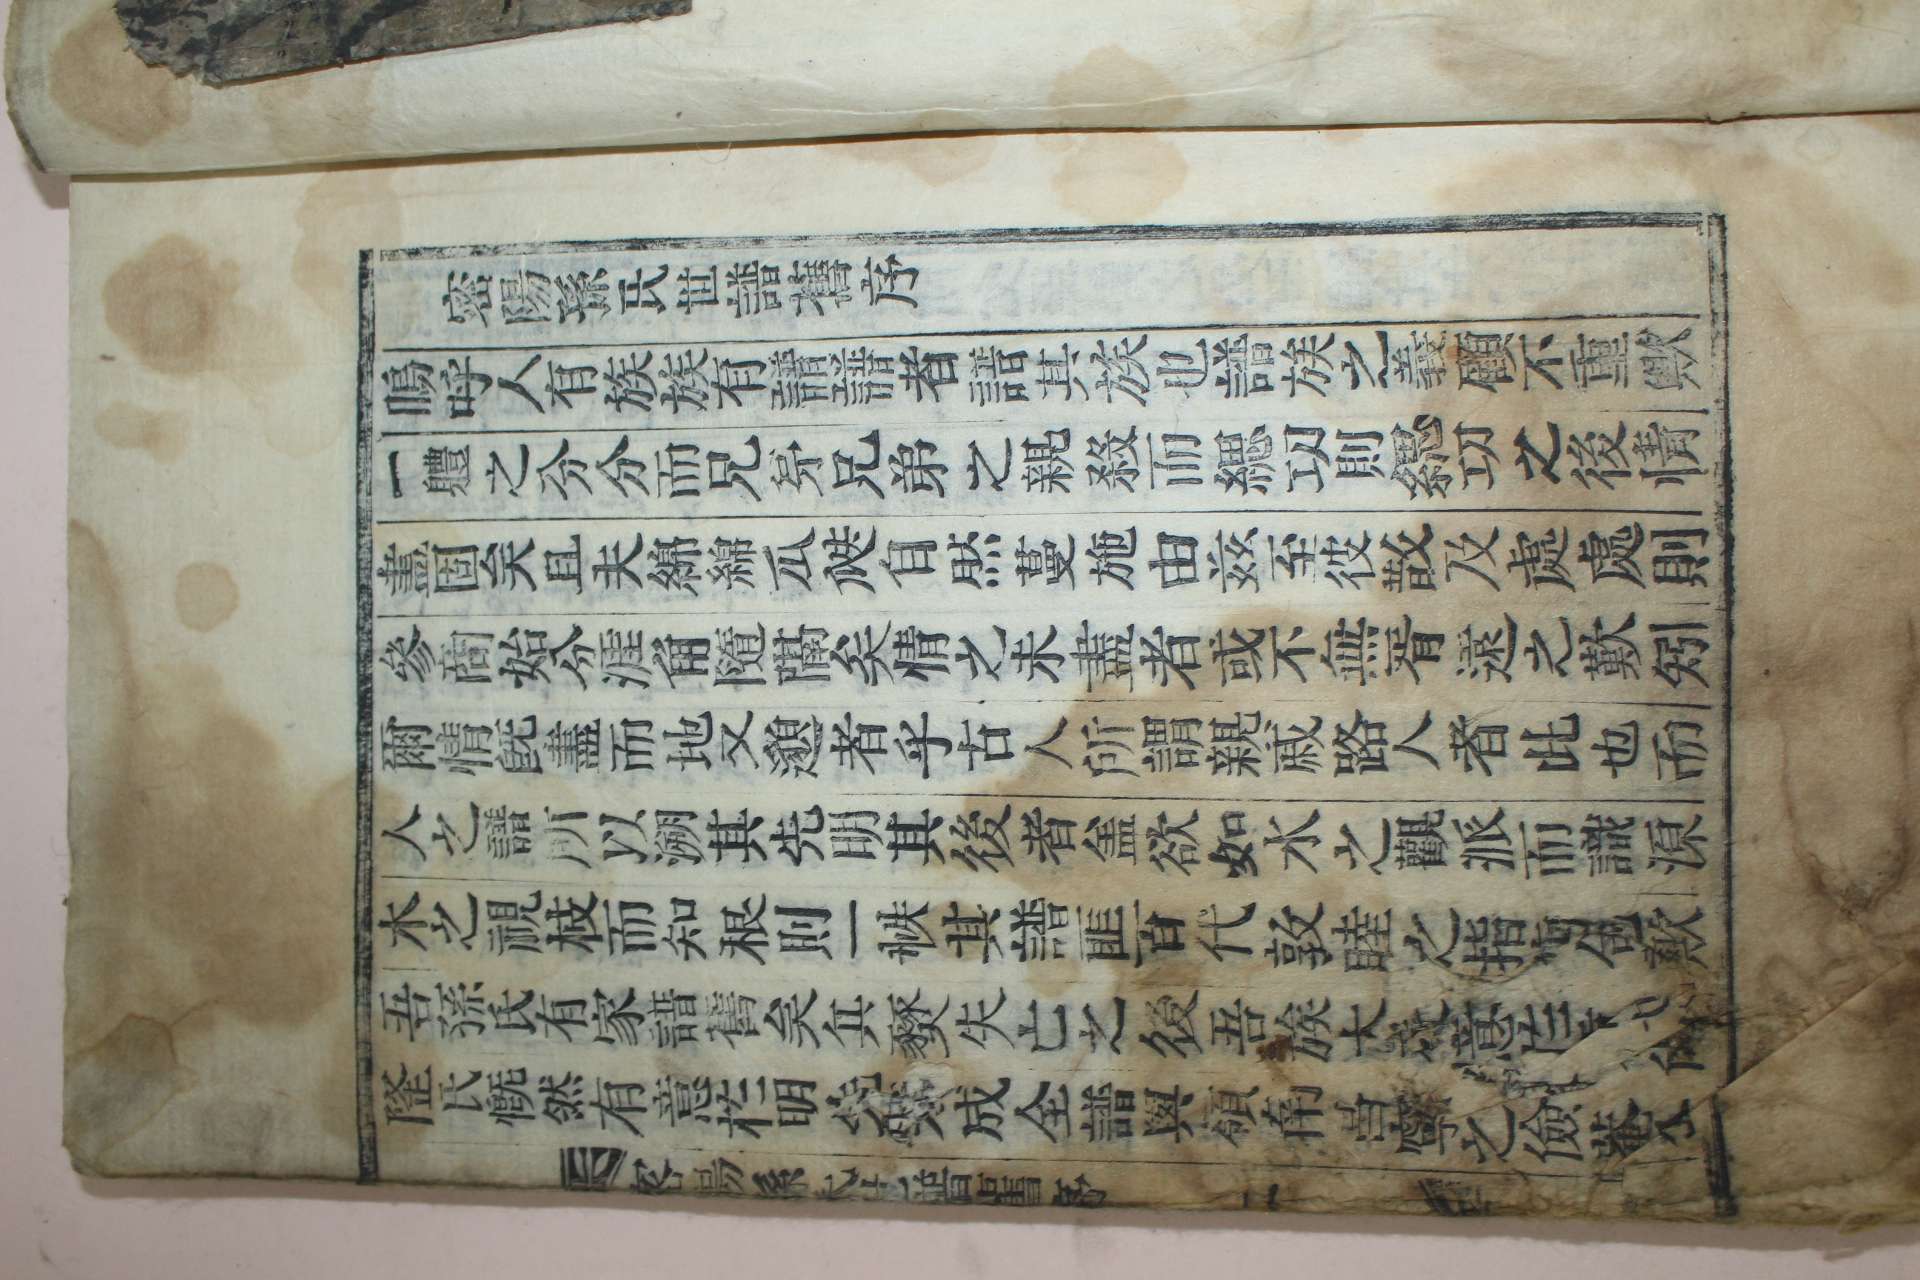 密陽孫氏世譜舊序
嗚呼人有族族有譜譜者譜其族也譜族之義顧不重歟
一體之分分而兄弟兄弟之親殺而緦功則緦功之後情
盡固矣且夫綿綿瓜瓞自然蔓施由玆至彼散及處處則
參商始分涯角隨隔矣情之未盡者或不無胥遠之歎矧
爾情旣盡而地又邈者乎古人所謂親戚路人者此也而
人之譜所以溯其先明其後者盖欲如水之觀派而識源
木之視枝而知根則一帙其譜匪百代敦睦之指南也歟
吾孫氏有家譜舊矣兵燹失亡之後吾族大
氏慨然有意在明成全譜與嶺南之儉菴公
密陽孫氏世譜舊序 一